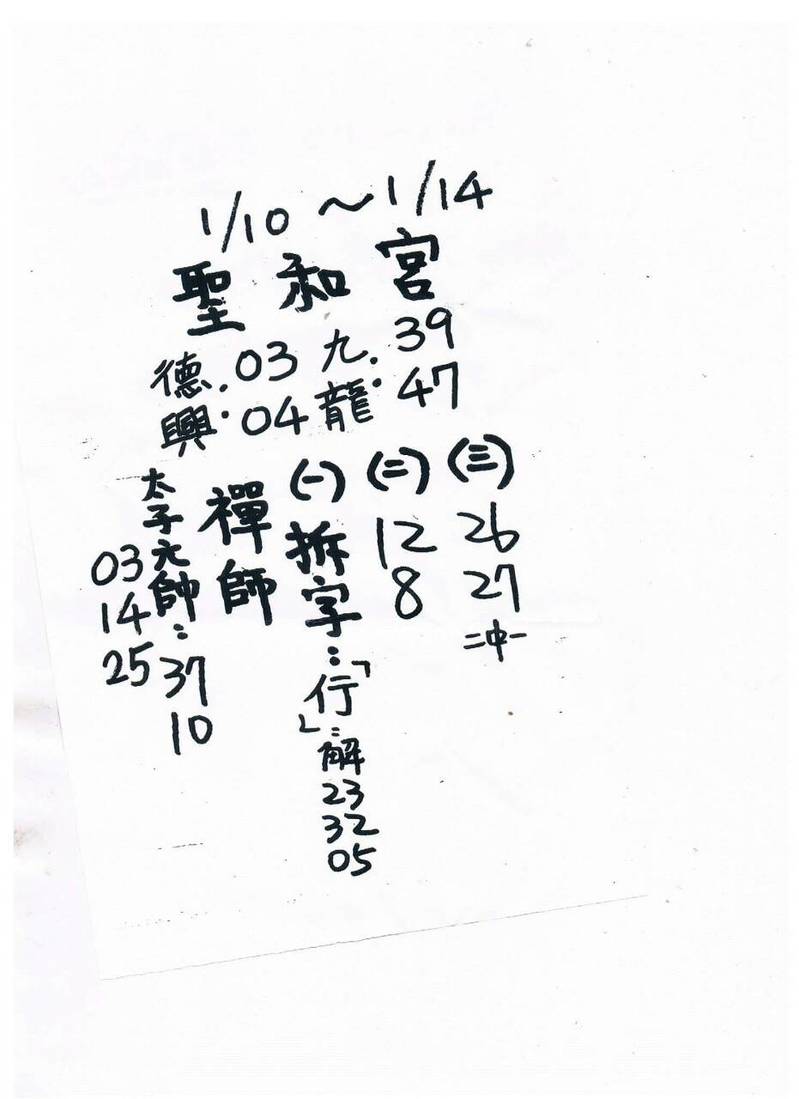 1/10 ～1/14
聖和宮
德興：03 04
九龍：39 47
(三)
26
27
二中一
(二)
12
8
(一)
拆字：「行」：解
23
32
05
禪師
太子元帥：37
10
03
14
25